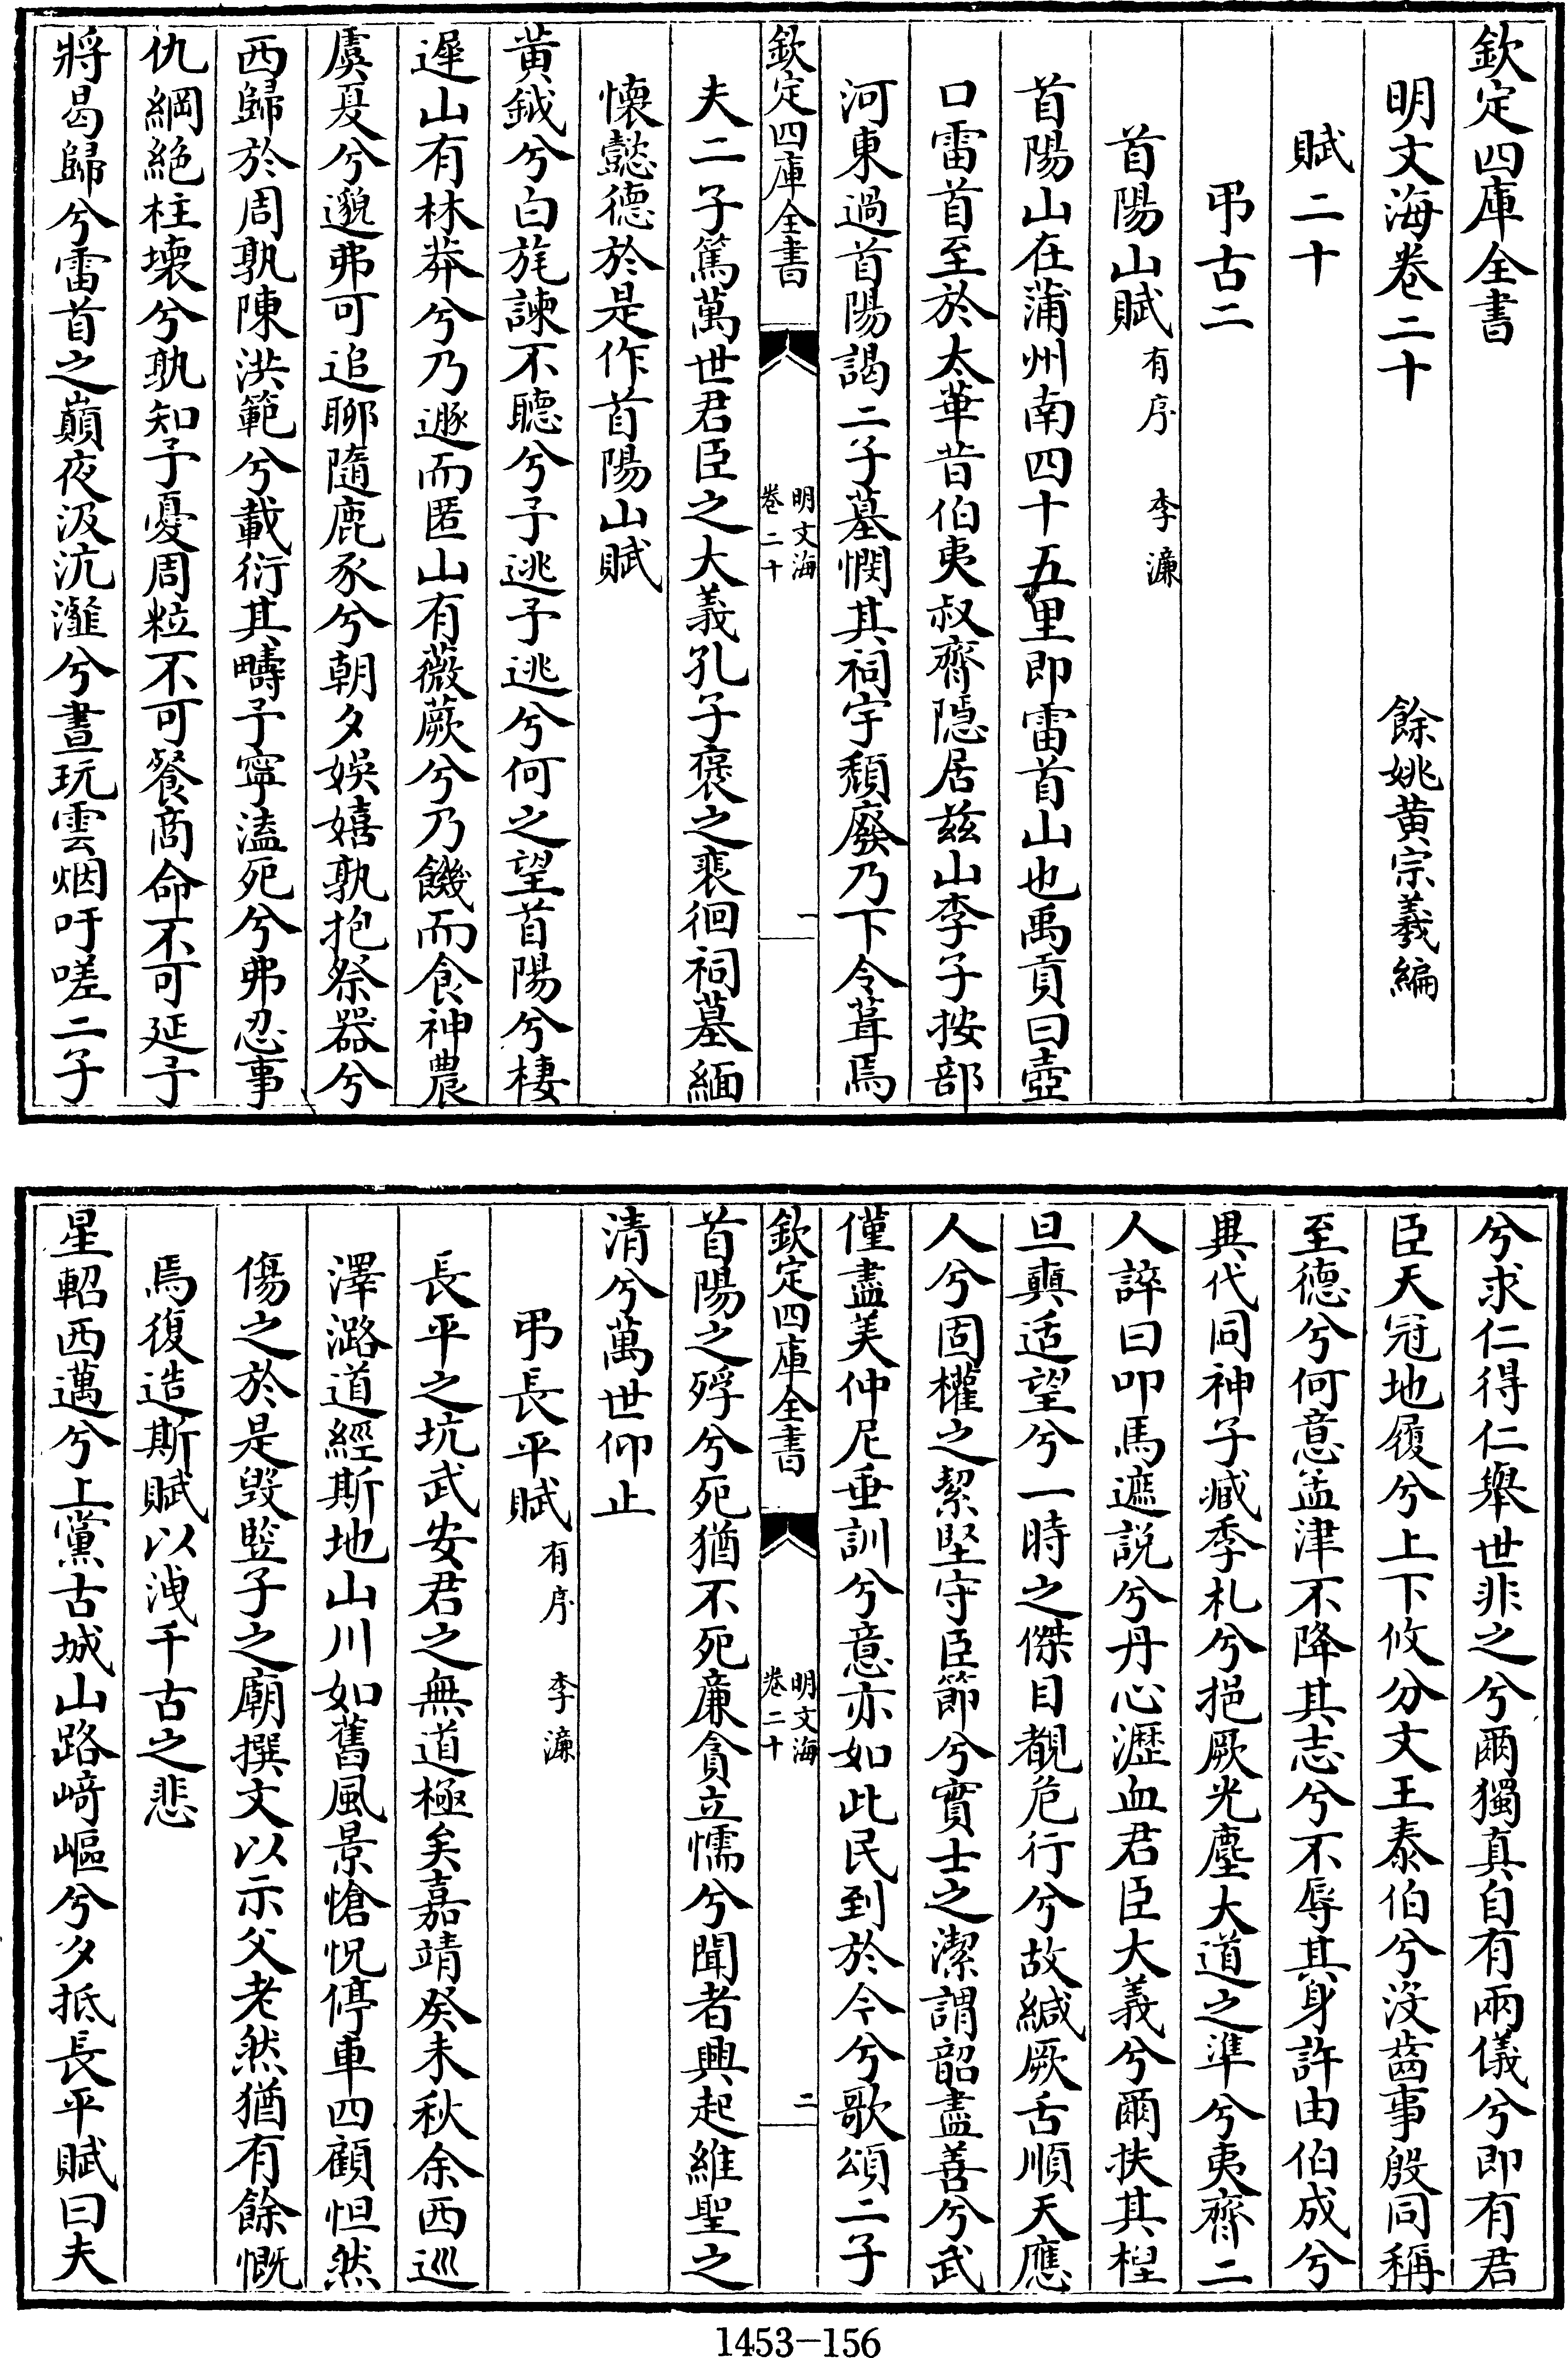 欽定四庫全書
明文海卷二十
餘姚黄宗羲編
賦二十
弔古二
首陽山賦有序 李濓
首陽山在蒲州南四十五里即雷首山也禹貢曰壺
口雷首至於太華昔伯夷叔齊隱居兹山李子按部
河東過首陽謁二子墓憫其祠宇頽廢乃下令葺焉
欽定四庫全書
明文海
卷二十
一
夫二子篤萬世君臣之大義孔子褒之裴徊祠墓緬
懷懿德於是作首陽山賦
黄鉞兮白旄諫不聽兮予逃予逃兮何之望首陽兮棲
遲山有林莽兮乃遯而匿山有薇蕨兮乃饑而食神農
虞夏兮邈弗可追聊隨鹿豕兮朝夕娱嬉孰抱祭器兮
西歸於周孰陳洪範兮載衍其疇予寧溘死兮弗忍事
仇綱絶柱壞兮孰知予憂周粒不可餐商命不可延予
將曷歸兮雷首之巔夜汲沆瀣兮晝玩雲烟吁嗟二子
兮求仁得仁舉世非之兮爾獨真自有兩儀兮即有君
臣天冠地履兮上下攸分文王泰伯兮没齒事殷同稱
至德兮何意孟津不降其志兮不辱其身許由伯成兮
異代同神子臧季札兮挹厥光塵大道之準兮夷齊二
人誶曰叩馬遮説兮丹心瀝血君臣大義兮爾扶其桯
旦奭适望兮一時之傑目覩危行兮故緘厥舌順天應
人兮固櫂之絜堅守臣節兮實士之潔謂韶盡善兮武
僅盡美仲尼垂訓兮意亦如此民到於今兮歌頌二子
欽定四庫全書
明文海
卷二十
二
首陽之殍兮死猶不死亷貪立懦兮聞者興起維聖之
清兮萬世仰止
弔長平賦有序 李濓
長平之坑武安君之無道極矣嘉靖癸未秋余西巡
澤潞道經斯地山川如舊風景愴怳停車四顧怛然
傷之於是毁豎子之廟撰文以示父老然猶有餘慨
焉復造斯賦以洩千古之悲
星軺西邁兮上黨古城山路﨑嶇兮夕抵長平賦曰夫
1453-156